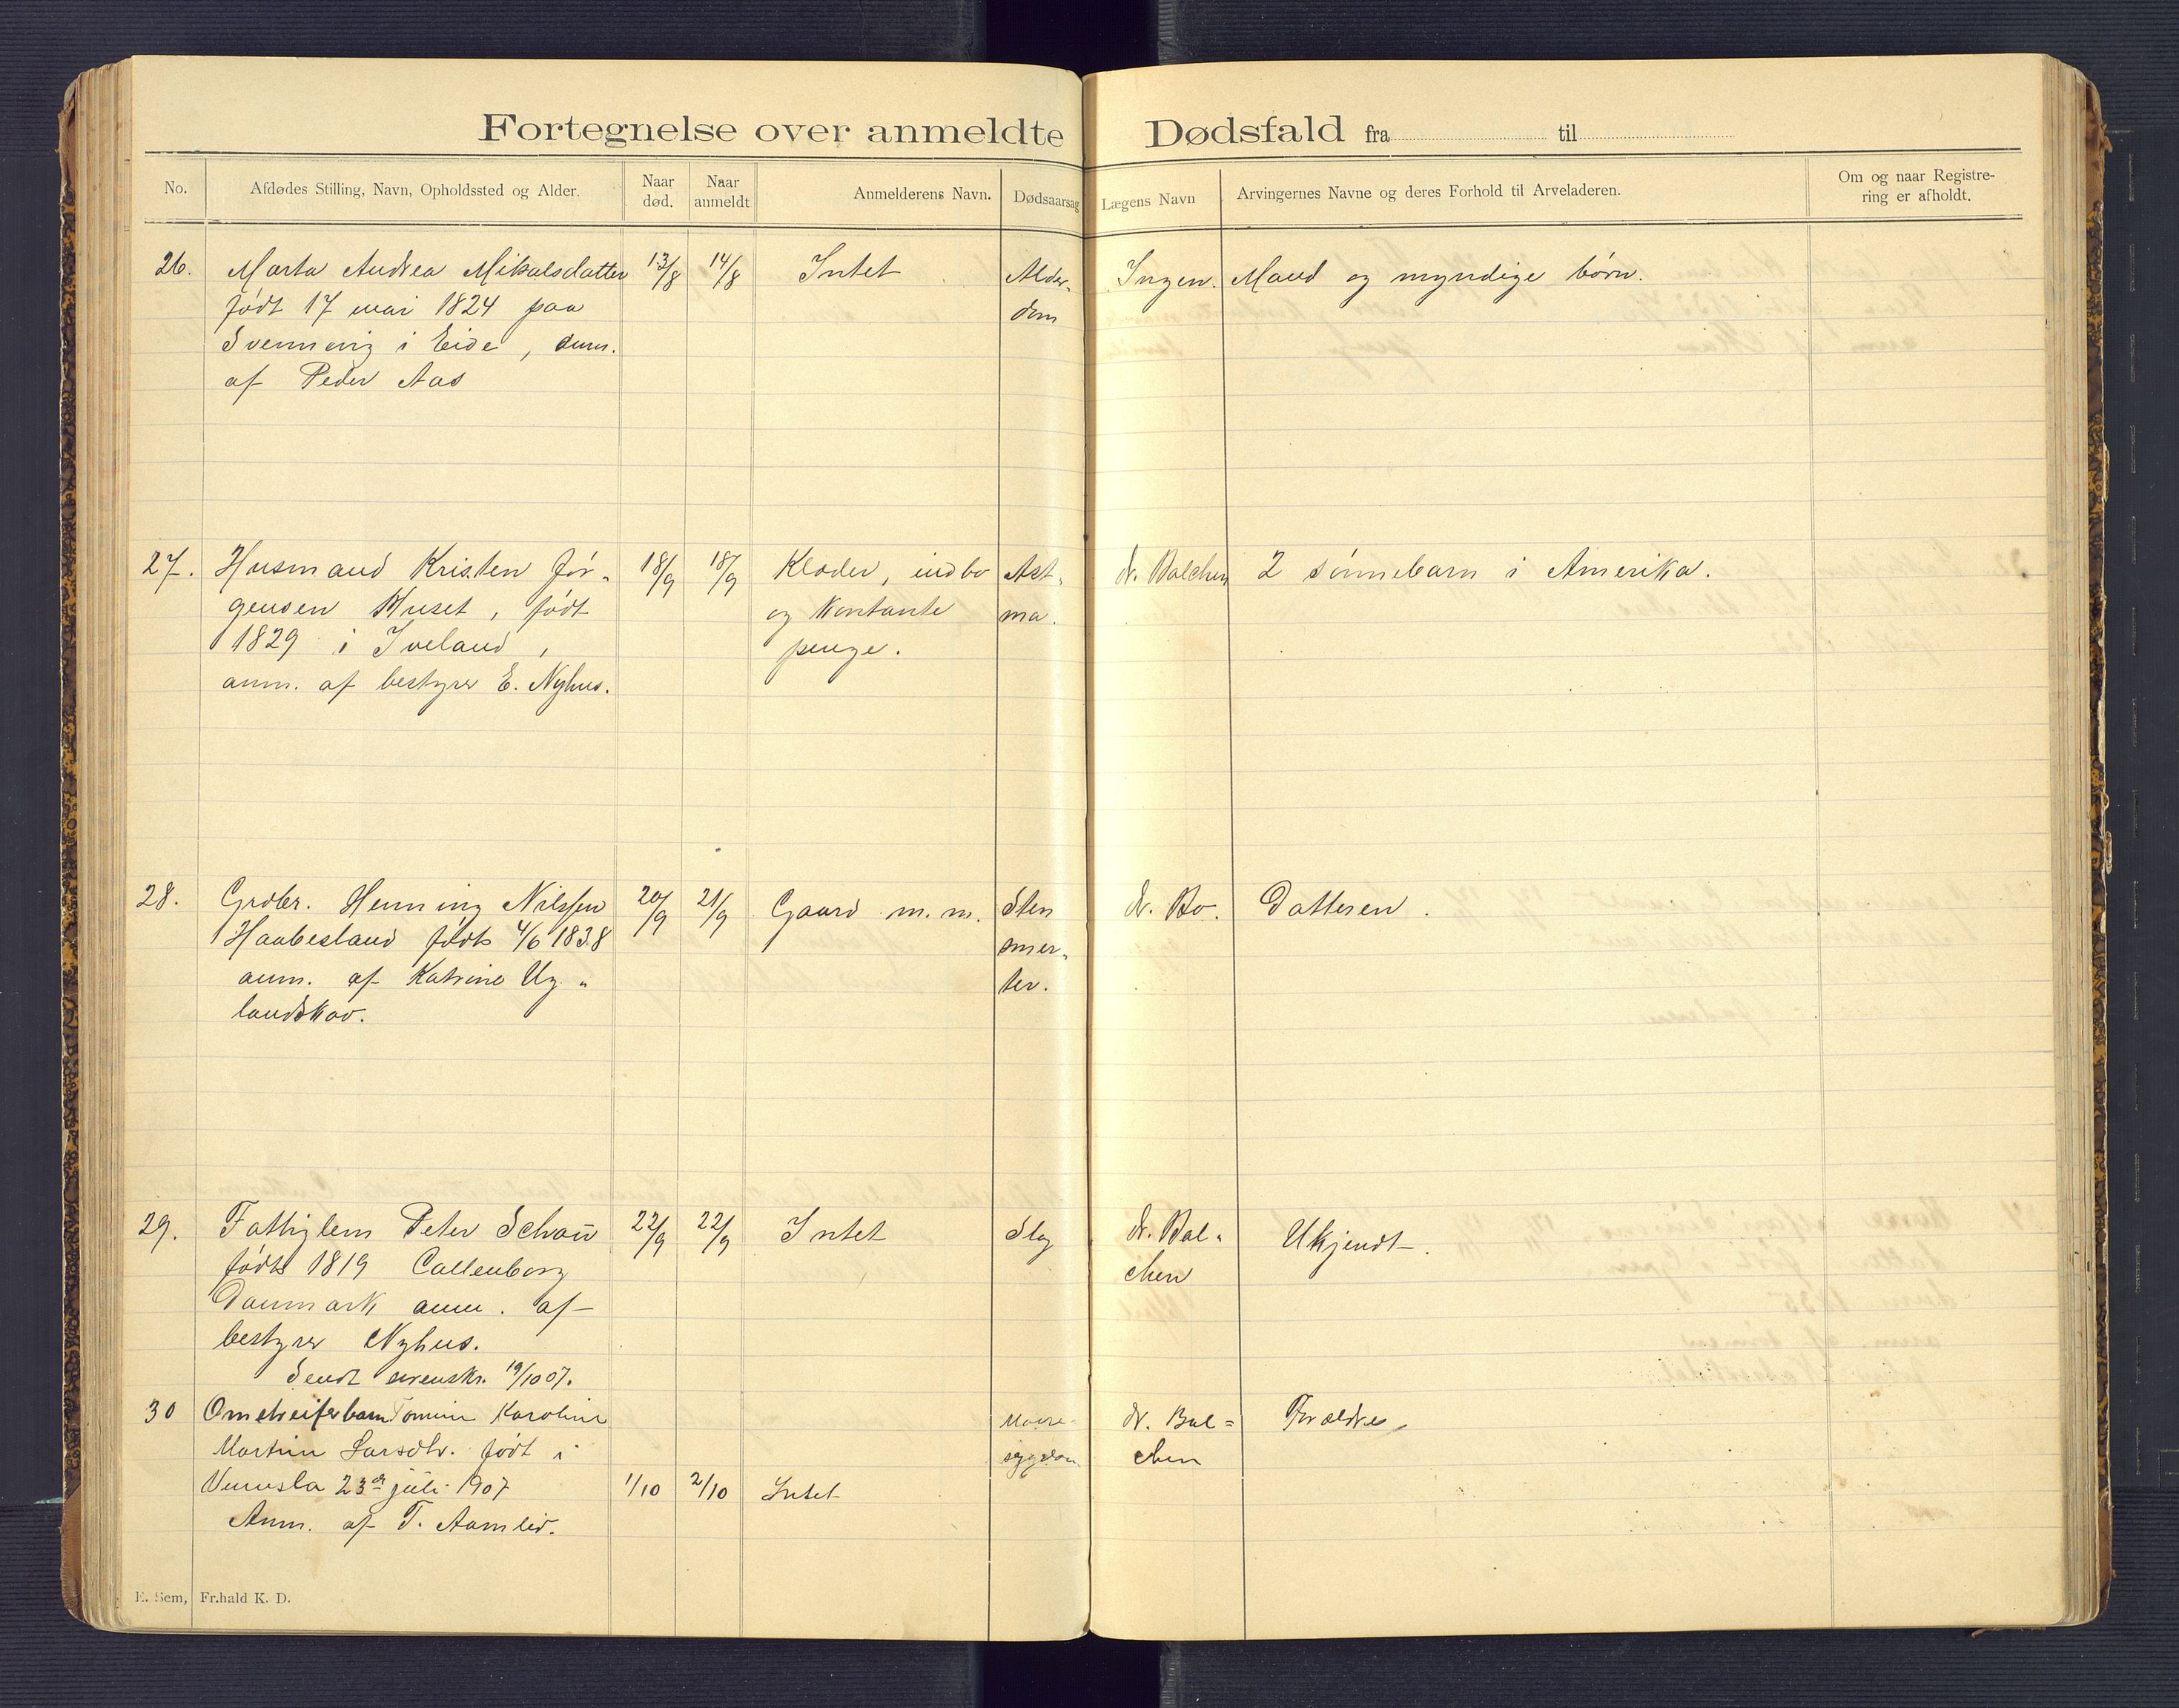 Fortegnelse over anmeldte Dødsfald fra til
No. Afdødes Stilling, Navn, Opholdssted og Alder. Naar død. Naar anmeldt Anmelderens Navn. Dødsaarsag Lægens Navn Arvingernes Navne og deres Forhold til Arveladeren. Om og naar Registrering er afholdt.
26. Marta Andrea Mikalsdatter 13/8 14/8 Intet Alder- Ingen. Mand og myndige børn.
født 17 mai 1824 paa dom
Svenning i Eide, anm.
af Peder Aas
27. Husmand Kristen Jør- 18/9 18/9 Klæder, indbo Ast- dr. Balchen 2 sønnebarn i Amerika.
gensen Huset, født og Kontante ma.
1829 i Iveland, penge.
anm. af bestyrer E. Nyhus.
28. Grdbr. Henning Nilssen 20/9 21/9 Gaard m. m. Sten dr. Bo. Datteren.
Haabesland født 4/6 1838 smer-
anm. af Katrine Ug- ter.
landskav.
29. Fattiglem Peter Schau 22/9 22/9 Intet Slag dr. Bal- Ukjendt.
født 1819 Callenborg chen
Danmark anm. af
bestyrer Nyhus.
Sendt svenskr. 19/10 07.
30 Omstreiferbarn Tomine Karoline Mave- dr. Bal= Forældre
Martine Larsdtr. født i sygdom chen
Vennsla 23de juli 1907 1/10 2/10 Intet
Anm. af T. Aamlid.
E. Sem, Fr.hald K. D.